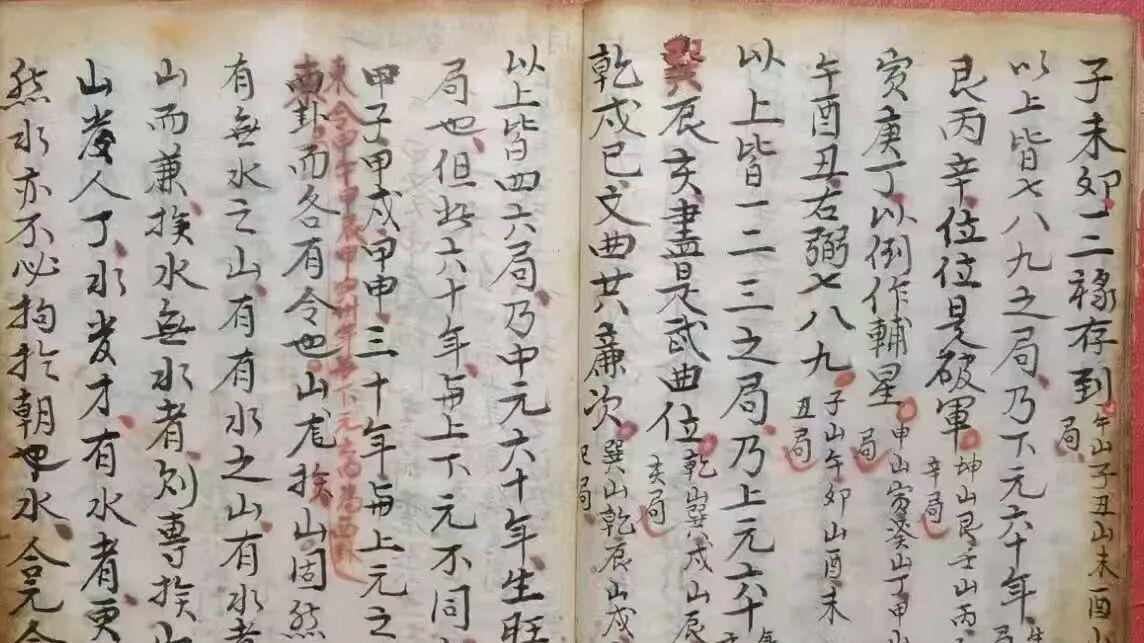 子未夘一二祿存到午山子丑山未酉
局
以上皆七八九之局乃下元六十年
艮丙辛位位是破軍坤山艮壬山丙
辛局
寅庚丁以倒作輔星申山寅癸山丁甲山
局
午酉丑右弼七八九子山午夘山酉未
丑局
以上皆一二三之局乃上元六十
巽辰亥盡是武曲位乾山巽戌山辰
亥局
乾戌巳文曲共廉次巽山乾辰山戌
巳局
以上皆四六局乃中元六十年生旺
局也但此六十年与上下元不同
甲子甲戌甲申三十年与上元之
東令甲午甲辰甲寅卅年与下元為西卦
卦而各有令也山龙挨山固然
有無水之山有有水之山有水者
山而兼挨水無水者則專挨山
山發人丁水發才有水者更
然水亦不必拘於朝也水合元合